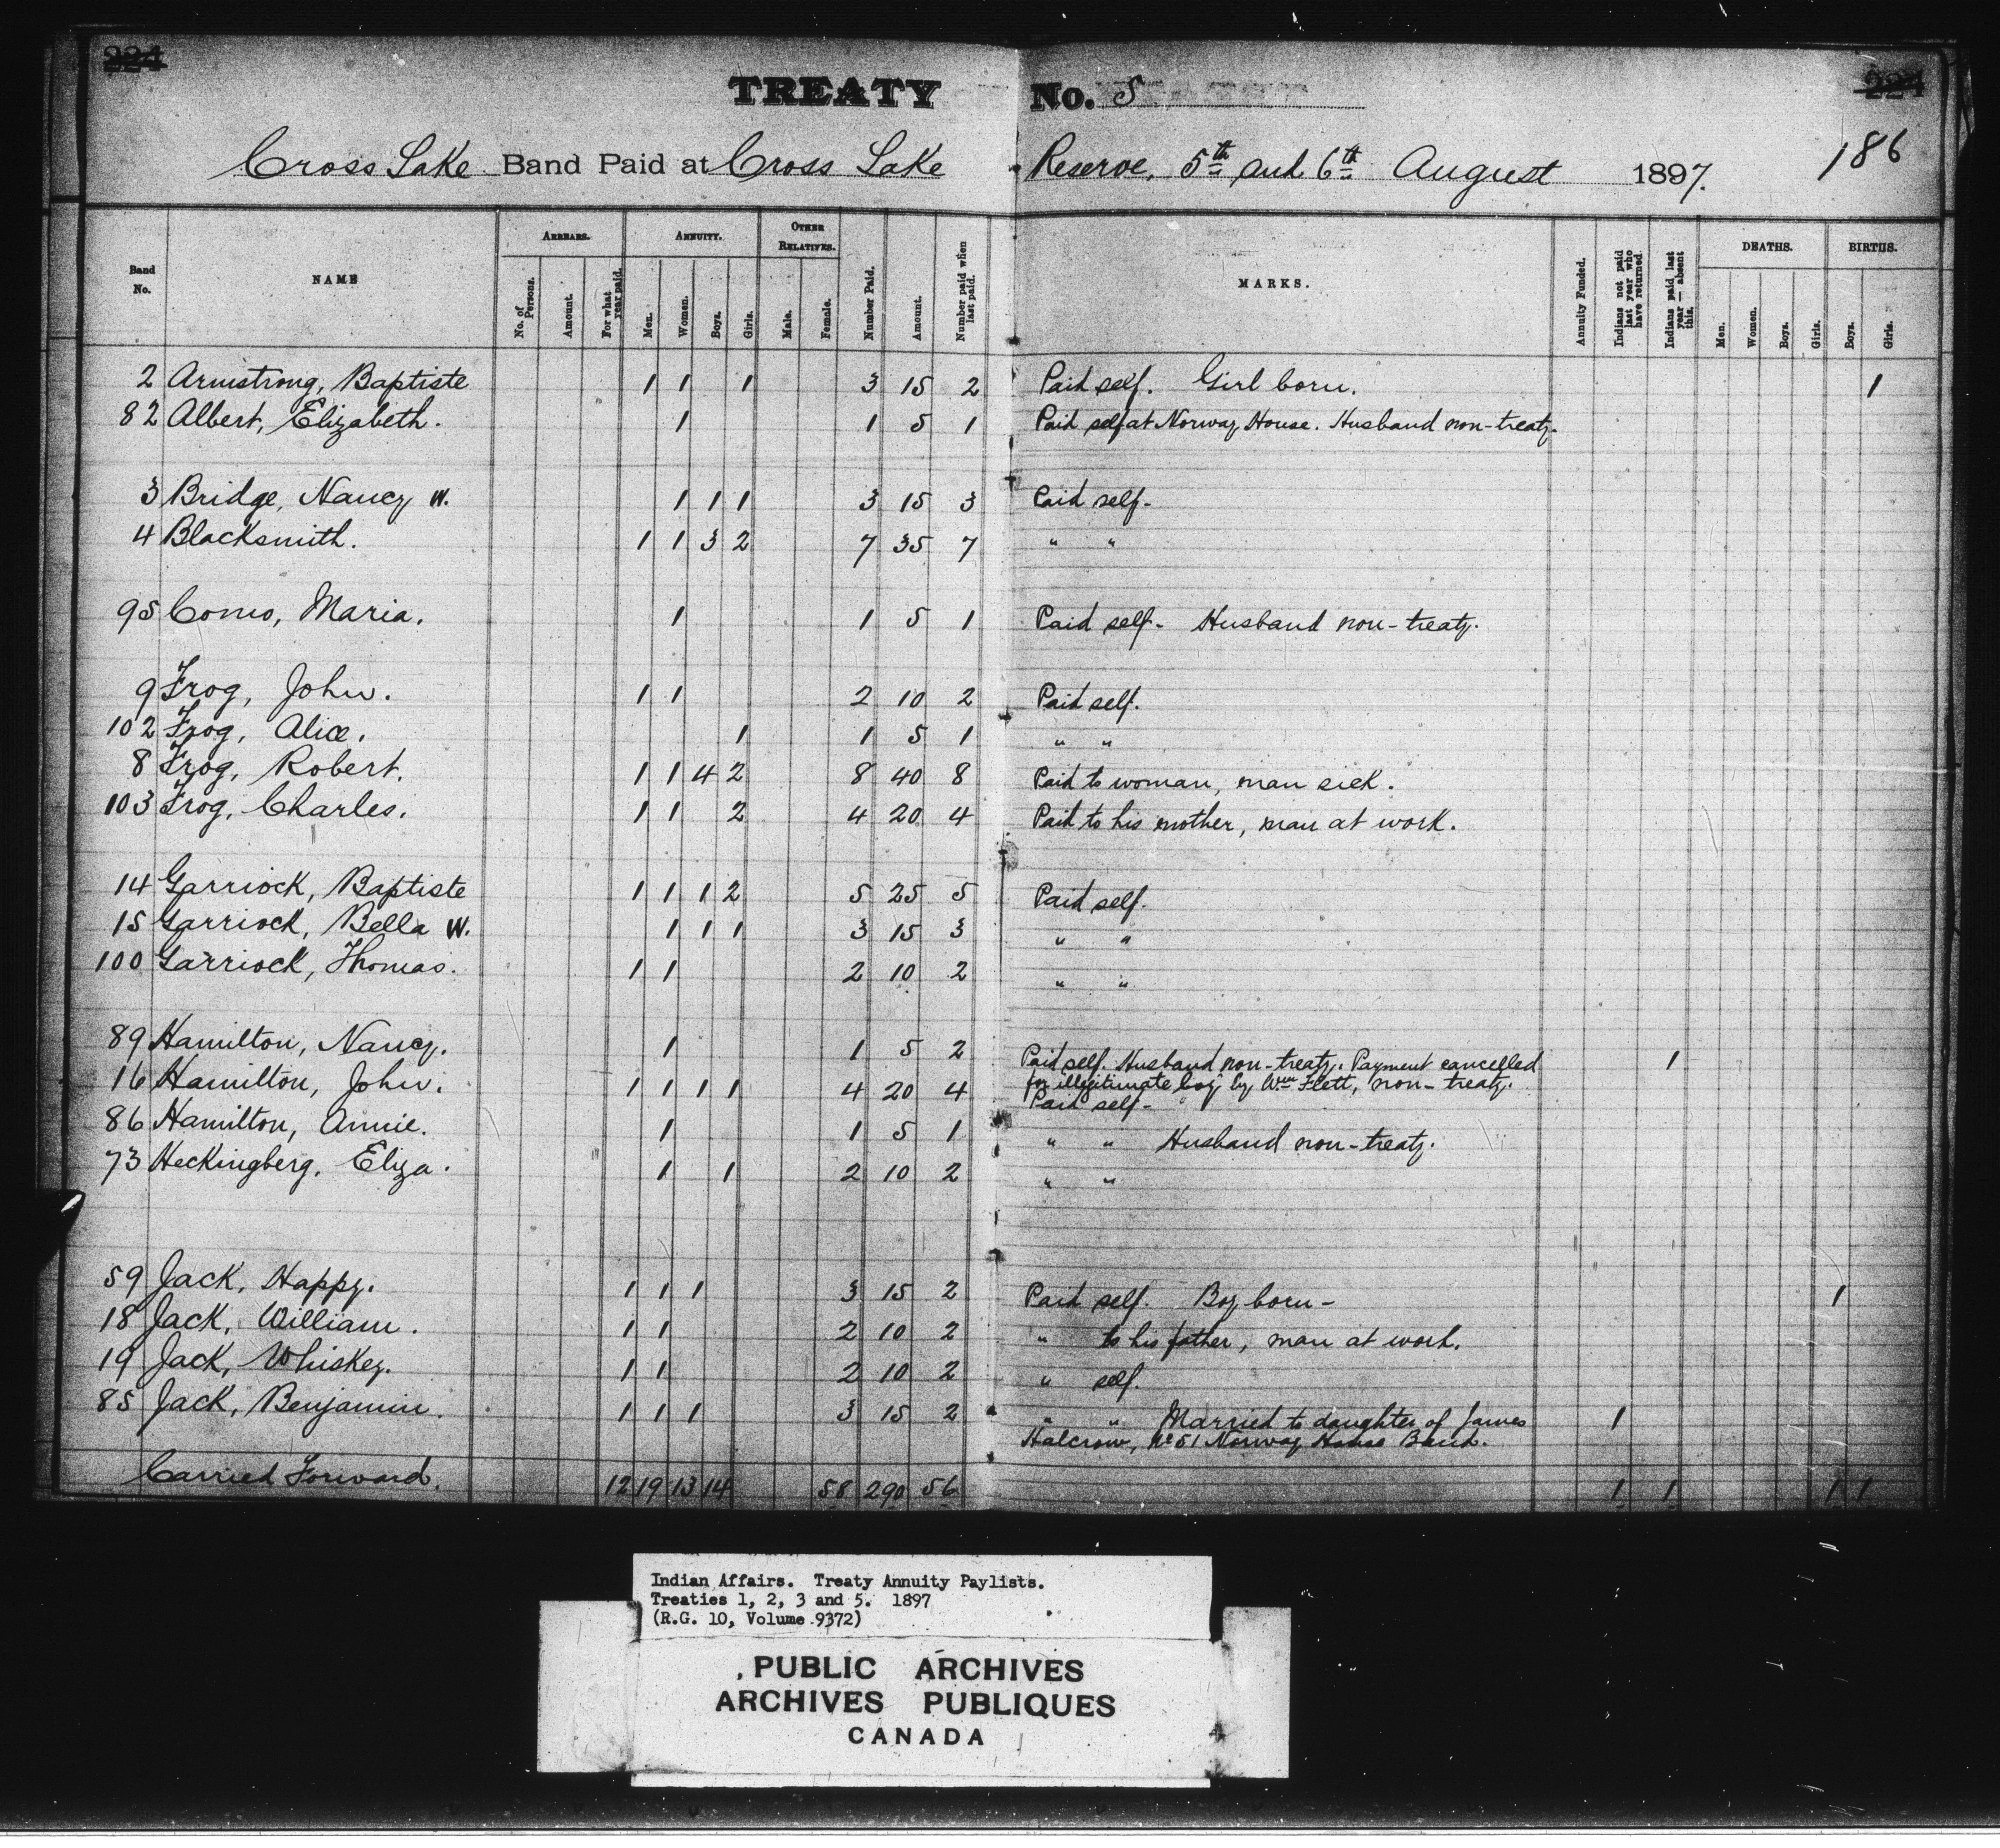 224 224
TREATY No. 5
Cross Lake Band Paid at Cross Lake Reserve, 5th and 6th August 1897. 186
Band No. NAME ARREARS. No. of Persons. Amount. For what year paid. ANNUITY. Men. Women. Boys. Girls. OTHER RELATIVES. Male. Female. Number Paid. Amount. Number paid when last paid. MARKS. Annuity Funded. Indians not paid last year who have returned. Indians paid last year — absent this. DEATHS. Men. Women. Boys. Girls. BIRTHS. Boys. Girls.
2 Armstrong, Baptiste 1 1 1 3 15 2 Paid self. Girl born. 1
82 Albert, Elizabeth. 1 1 5 1 Paid self at Norway House. Husband non-treaty.
3 Bridge, Nancy W. 1 1 1 3 15 3 Paid self-
4 Blacksmith. 1 1 3 2 7 35 7 " "
95 Como, Maria. 1 1 5 1 Paid self- Husband non-treaty.
9 Frog, John. 1 1 2 10 2 Paid self.
102 Frog, Alice. 1 1 5 1 " "
8 Frog, Robert. 1 1 4 2 8 40 8 Paid to woman, man sick.
103 Frog, Charles. 1 1 2 4 20 4 Paid to his mother, man at work.
14 Garriock, Baptiste 1 1 1 2 5 25 5 Paid self.
15 Garriock, Bella W. 1 1 1 3 15 3 " "
100 Garriock, Thomas. 1 1 2 10 2 " "
89 Hamilton, Nancy. 1 1 5 2 Paid self. Husband non-treaty. Payment cancelled 1
for illegitimate boy by Wm Flett, non-treaty.
16 Hamilton, John. 1 1 1 1 4 20 4 Paid self-
86 Hamilton, Annie. 1 1 5 1 " " Husband non-treaty.
73 Heckingberg, Eliza. 1 1 2 10 2 " "
59 Jack, Happy. 1 1 1 3 15 2 Paid self. Boy born- 1
18 Jack, William. 1 1 2 10 2 " to his father, man at work.
19 Jack, Whiskey. 1 1 2 10 2 " self.
85 Jack, Benjamin. 1 1 1 3 15 2 " " Married to daughter of James 1
Halcrow, No 51 Norway House Band.
Carried Forward. 12 19 13 14 58 290 56 1 1 1 1
Indian Affairs. Treaty Annuity Paylists.
Treaties 1, 2, 3 and 5. 1897
(R.G. 10, Volume 9372)
PUBLIC ARCHIVES
ARCHIVES PUBLIQUES
CANADA